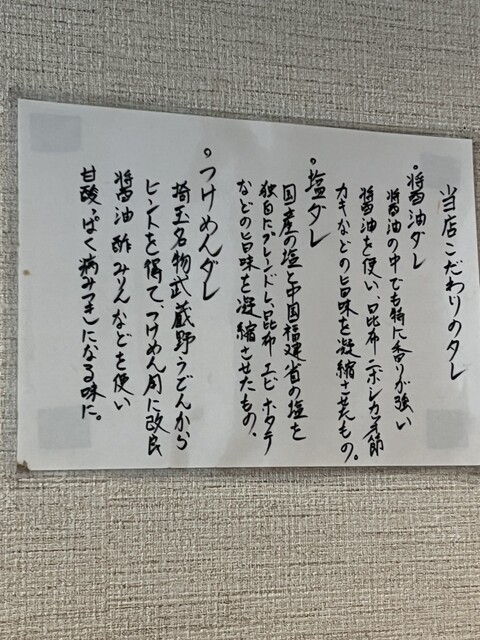 当店こだわりのタレ
・醤油ダレ
醤油の中でも特に香りが強い
醤油を使い、昆布 ニボシ カツオ節
カキなどの旨味を凝縮させたもの。
・塩ダレ
国産の塩と中国福建省の塩を
独自にブレンドし、昆布 エビ ホタテ
などの旨味を凝縮させたもの、
・つけめんダレ
埼玉名物武蔵野うどんから
ヒントを得て、つけめん用に改良
醤油 酢 みりんなどを使い
甘酸っぱく病みつきになる味に。